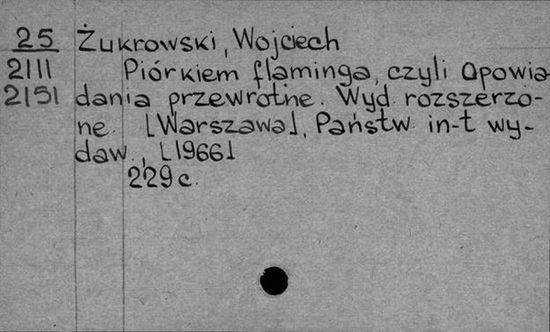 25 Żukrowski, Wojciech
2111 Piórkiem flaminga, czyli Opowia
2151 dania przewrotne. Wyd. rozszerzo-
ne. [Warszawa], Państw. in-t wy-
daw., [1966]
229 c.